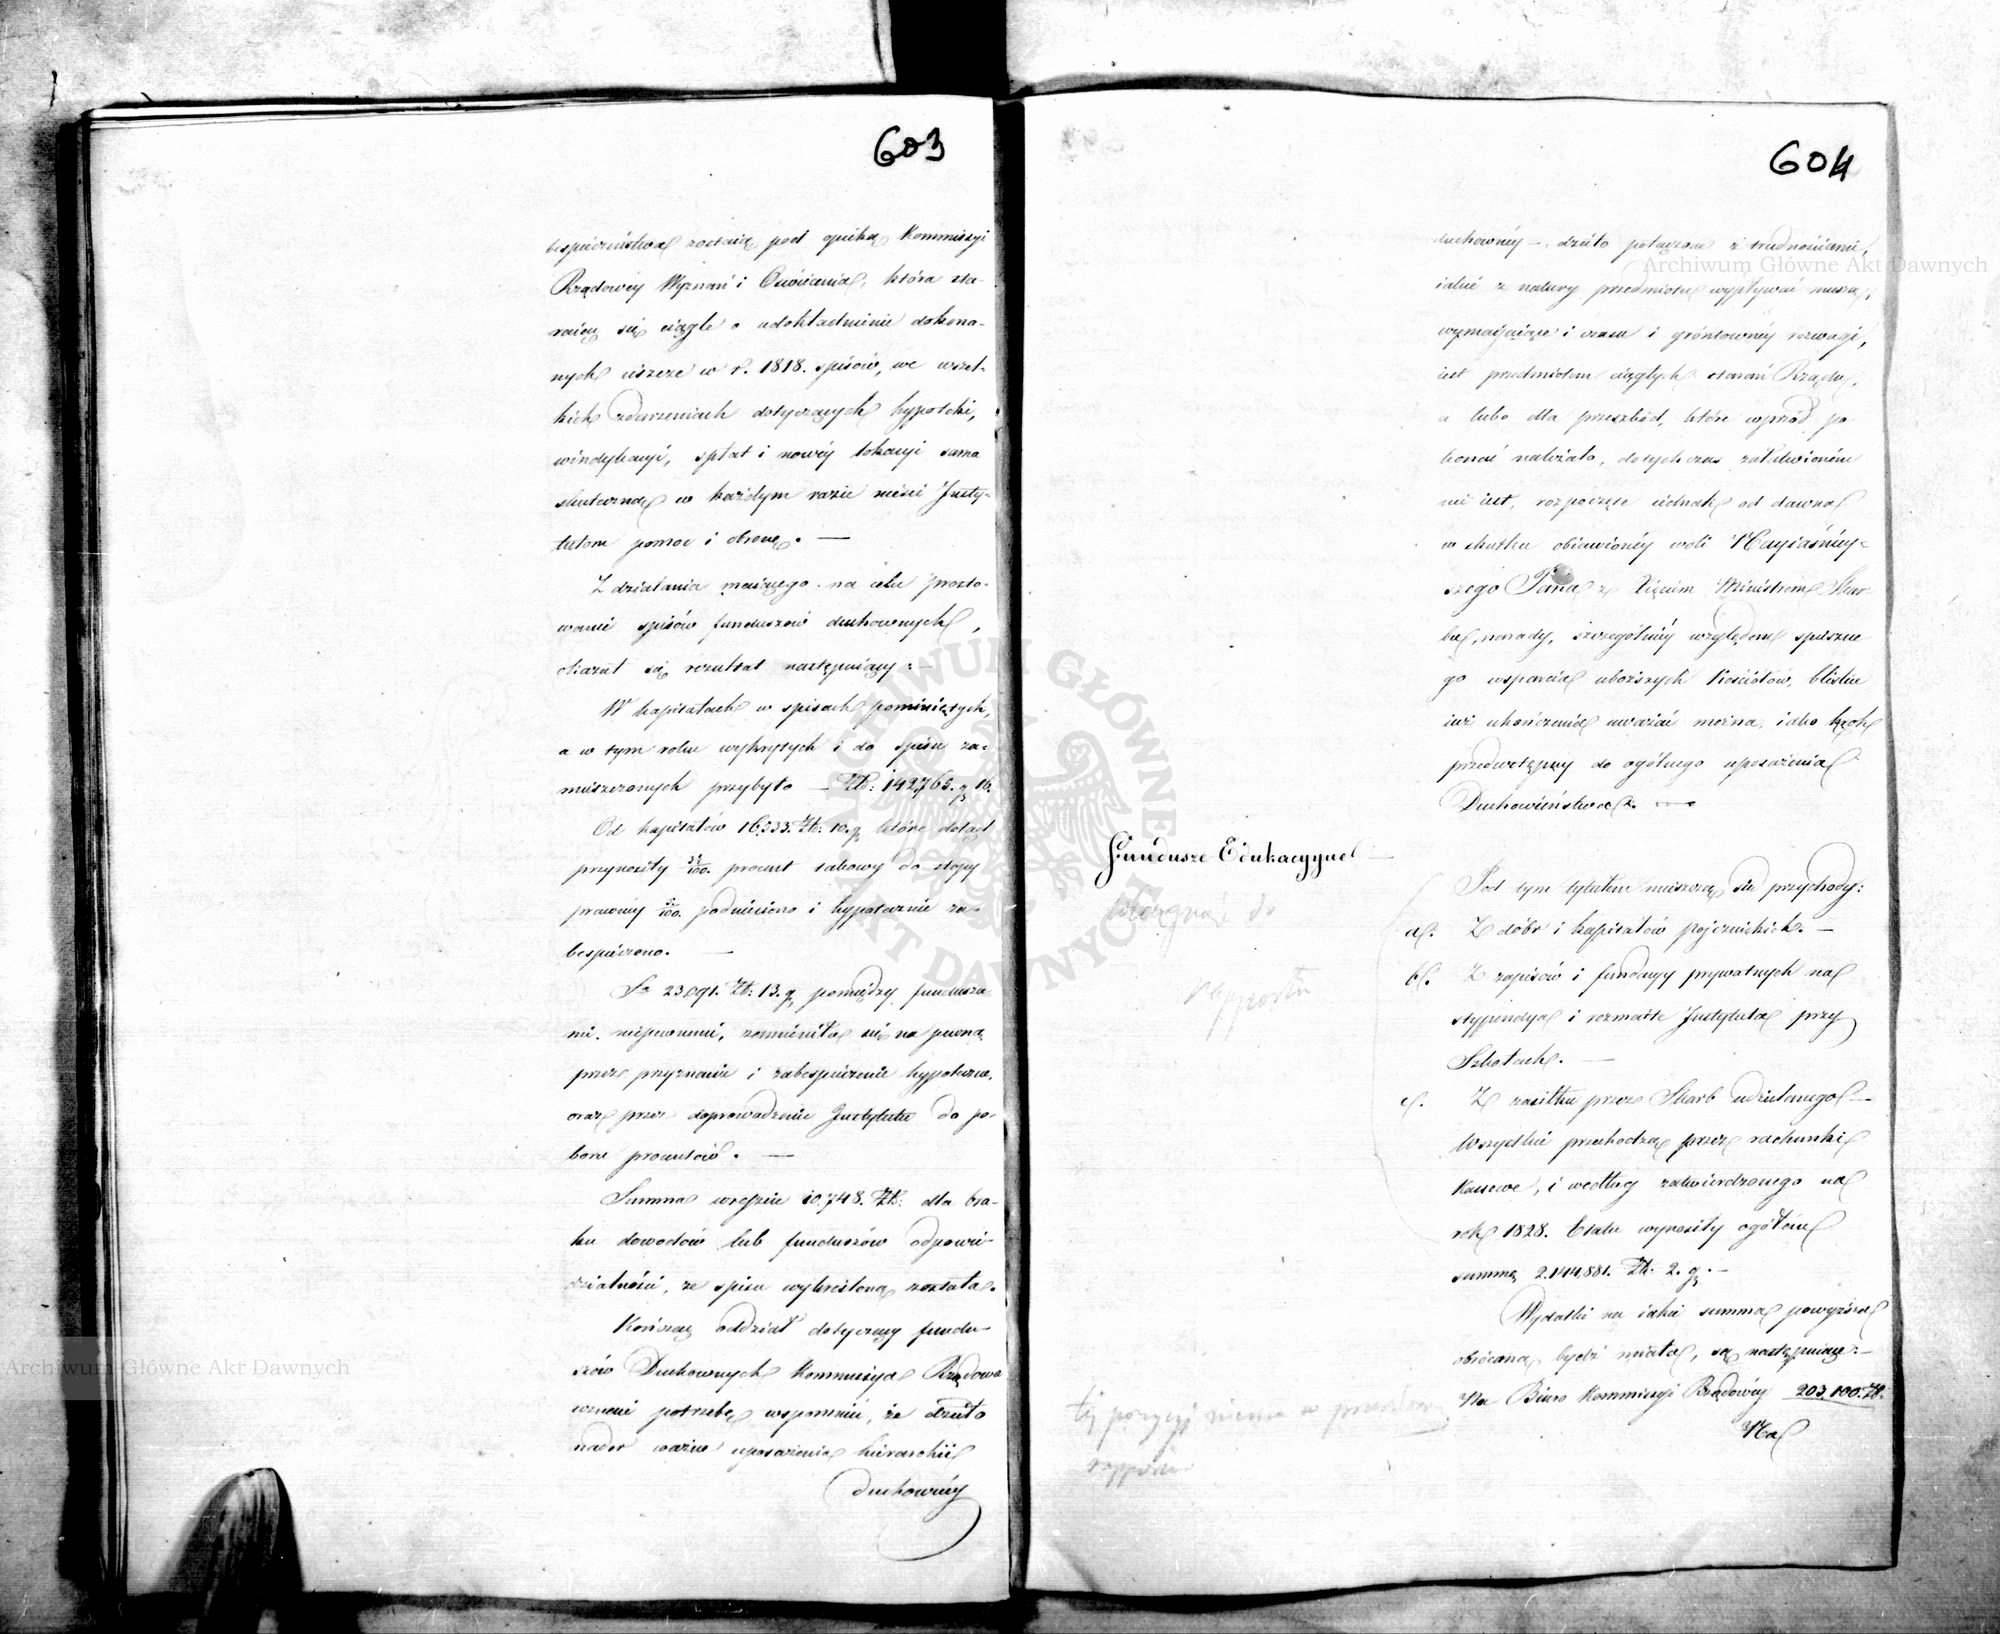 603
bespieczeństwa zostaią pod opieką Kommissyi
Rządowéy Wyznań i Oświecenia, która sta-
raiąc się ciągle o udokładnienie dokona-
nych ieszcze w r. 1818. spisów, we wszel-
kich zdarzeniach dotyczących hypoteki,
windykacyi, spłat i nowéy lokacyi sama
skuteczną w każdym razie niesie Insty-
tutom pomoc i obronę. —
Z działania maiącego na celu prosto-
wanie spisów funduszów duchownych,
okazał się rezultat następuiący: —
W kapitałach w spisach pominiętych,
a w tym roku wykrytych i do spisu za-
mieszczonych przybyło — Złt: 142,765. g 16.
Od kapitałów 16,333. Złt: 10. g które dotąd
przynosiły procent takowy do stopy
prawnéy 5/100. podniesiono i hypotecznie za-
bespieczono. —
Sa 23,091. Zł: 13. g pomiędzy fundusza
mi niepewnemi, zamieniła się na pewną
przez przyznanie i zabespieczenie hypoteczne,
oraz przez doprowadzenie Instytutu do po-
boru procentów. —
Summa wreszcie 10,748. Złt: dla bra-
ku dowodów lub funduszów odpowie-
dzialności, ze spisu wykreśloną została.
Kończąc oddział dotyczący fundu-
szów Duchownych Kommissya Rządowa
uznaie potrzebę wspomnieć, że dzieło
nader ważne uposażenia hierarchii
duchownéy
604
duchownéy —, dzieło połączone z trudnościami,
iakie z natury przedmiotu wypływać muszą,
wymagaiące i czasu i gróntownéy rozwagi,
iest przedmiotem ciągłych starań Rządu,
a lubo dla przeszkód, które wprzód po
konać należało, dotychczas załatwioném
nie iest, rozpoczęte iednak od dawna
w skutku obiawionéy woli Nayiaśniéy-
szego Pana z Xięciem Ministrem Skar
bu, narady, szczególniéy względem spieszne
go wsparcia uboższych Kościołów, bliskie
iuż ukończenia uważać można, iako krok
przedwstępny do ogólnego uposażenia
Duchowieństwa. —
Fundusze Edukacyyne —
Pod tym tytułem mieszczą się przychody:
a. Z dóbr i kapitałów pojezuickich. —
b. Z zapisów i fundacyy prywatnych na
stypendya i rozmaite Instytuta przy
Szkołach. —
c. Z zasiłku przez Skarb udzielanego —
Wszystkie przechodzą przez rachunki
Kassowe, i według zatwierdzonego na
rok 1828. Etatu wynosiły ogółem
summę 2,144,881. Złt: 2. g. —
Wydatki na iakie summa powyższa
obrócona bydź miała, są następuiące: —
Na Biuro Kommissyi Rządowéy 203,100. Zł.
Na
rapportu
téj pozycji niema w
rapporcie
Archiwum Główne Akt Dawnych
Archiwum Główne Akt Dawnych
ARCHIWUM GŁÓWNE AKT DAWNYCH